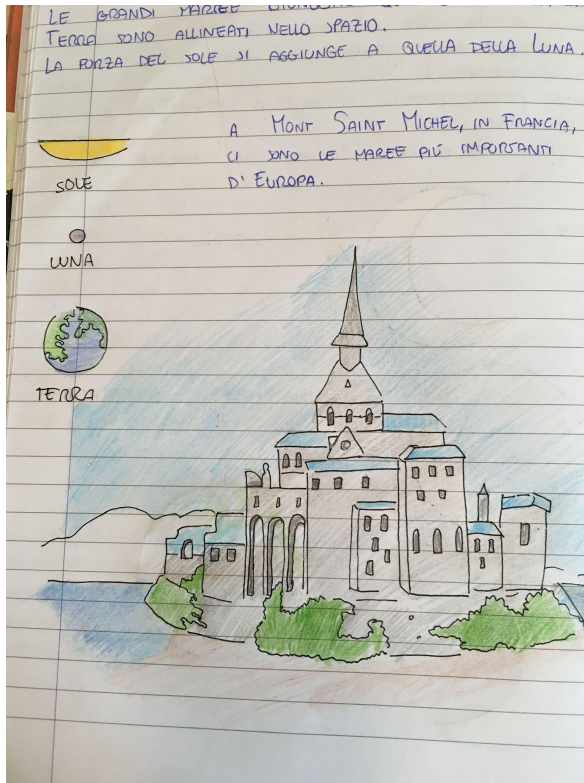 LE GRANDI MAREE
TERRA SONO ALLINEATI NELLO SPAZIO.
LA FORZA DEL SOLE SI AGGIUNGE A QUELLA DELLA LUNA.
A MONT SAINT MICHEL, IN FRANCIA,
CI SONO LE MAREE PIÙ IMPORTANTI
D'EUROPA.
SOLE
LUNA
TERRA